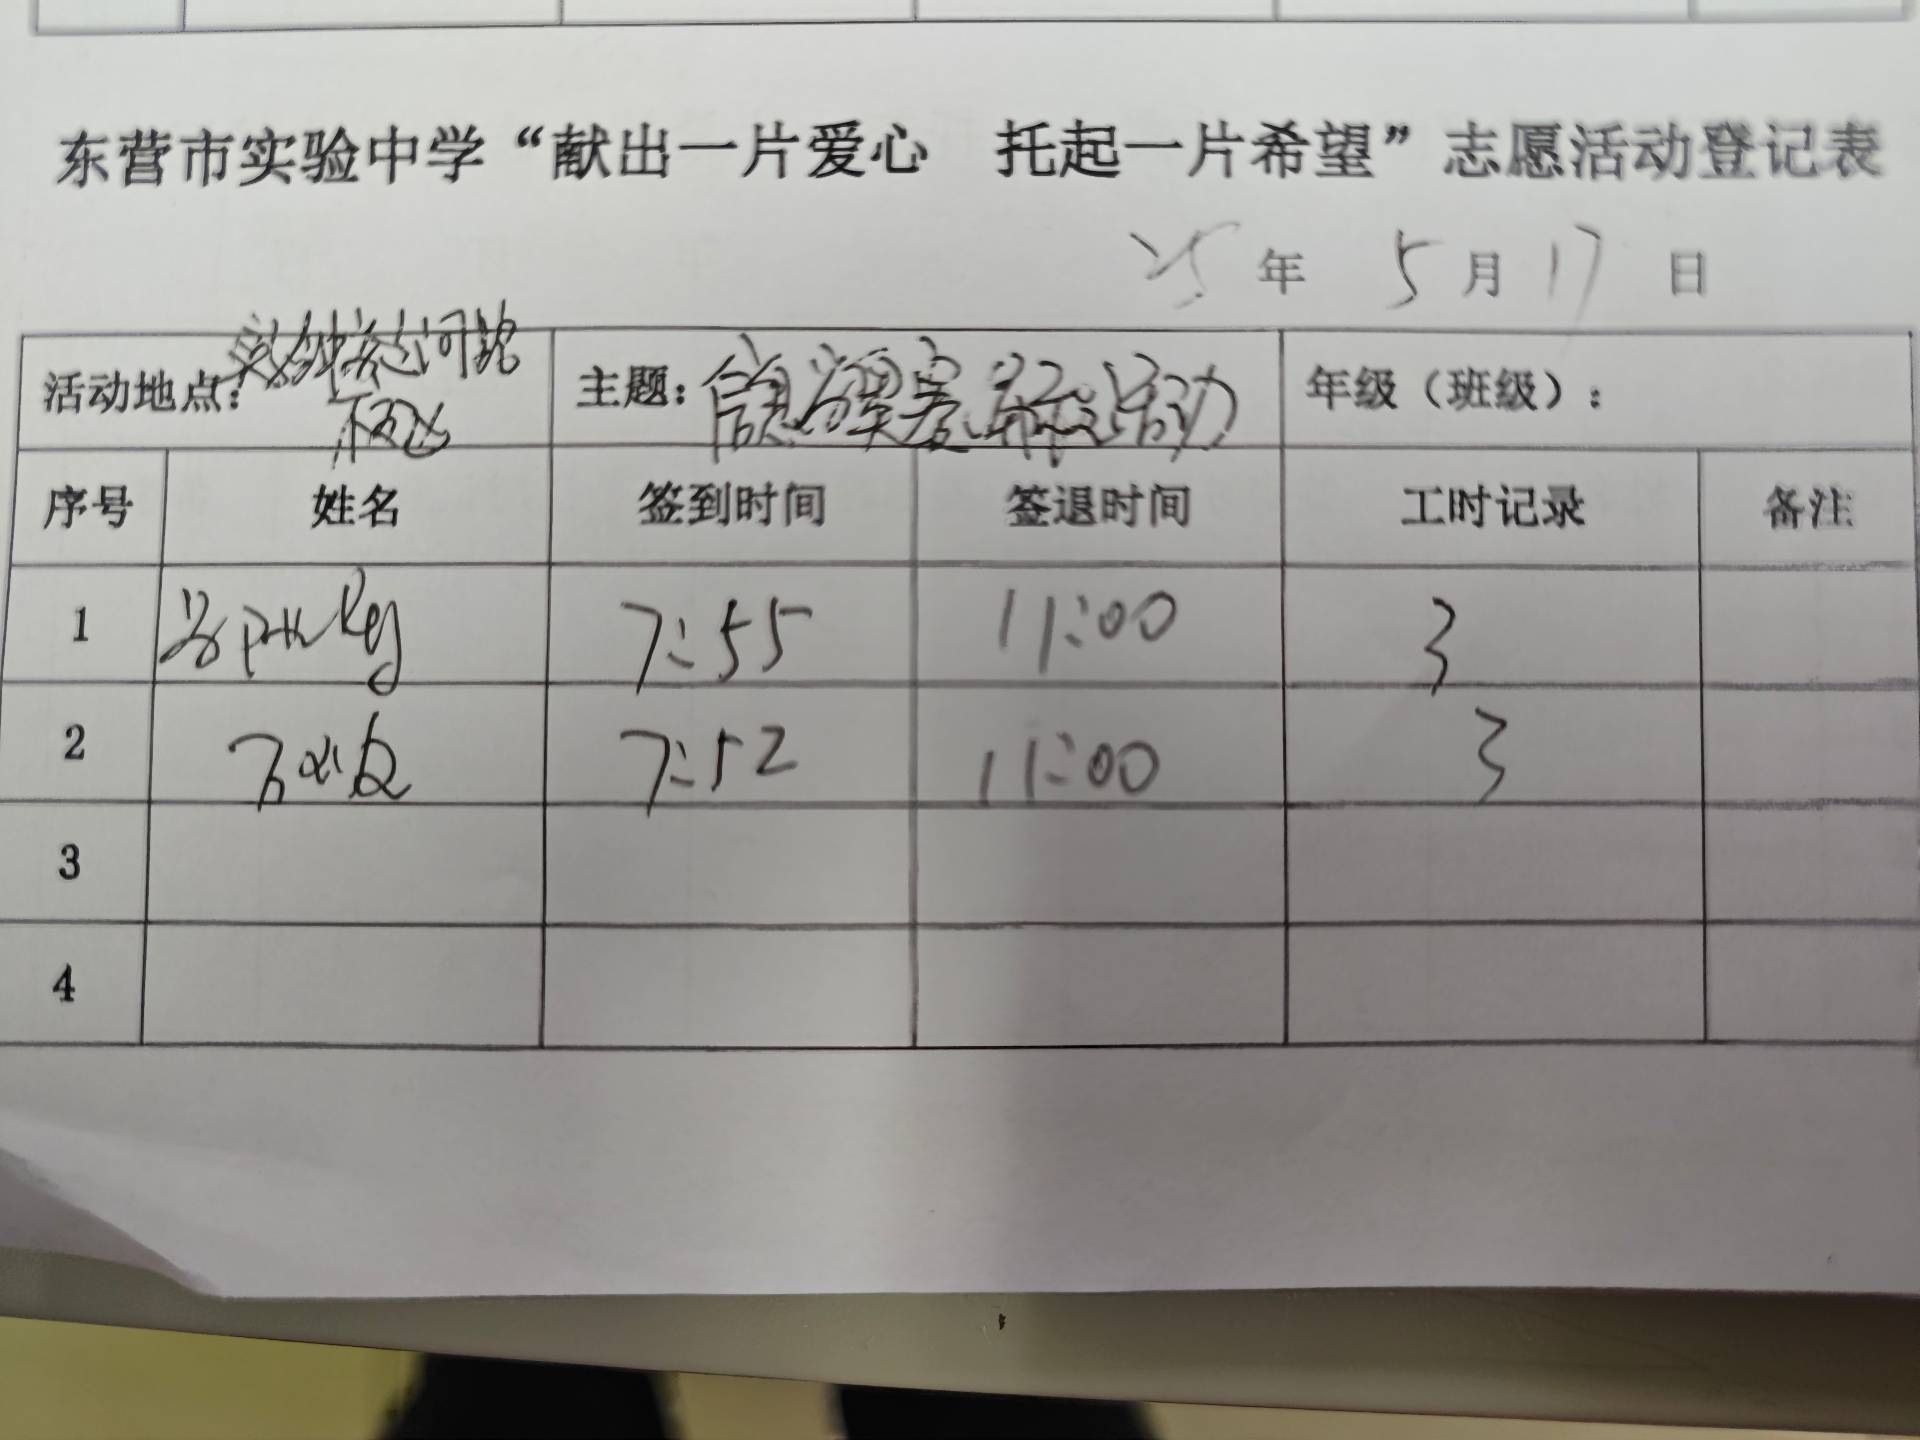 东营市实验中学“献出一片爱心 托起一片希望”志愿活动登记表
25 年 5 月 17 日
活动地点： 主题：信息 奥赛 活动 年级（班级）：
序号 姓名 签到时间 签退时间 工时记录 备注
1 7:55 11:00 3
2 7:52 11:00 3
3
4